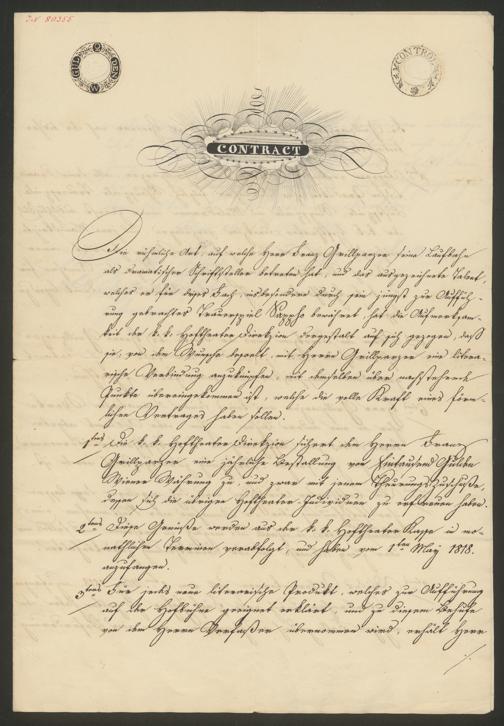 I.N. 80355
GULDEN W W
CONTROLE
CONTRACT
Die rühmliche Art, auf welche Herr Franz Grillparzer seine Laufbahn
als dramatischer Schriftsteller betreten hat, und das ausgezeichnete Talent,
welches er für dieses Fach, insbesondere durch sein jüngst zur Auffüh-
rung gebrachtes Trauerspiel Sappho bewährt, hat die Aufmerksam-
keit der k. k. Hoftheater Direkzion dergestalt auf sich gezogen, daß
sie, von dem Wunsche beseelt, mit Herrn Grillparzer eine litera-
rische Verbindung anzuknüpfen, mit demselben über nachstehende
Punkte übereingekommen ist, welche die volle Kraft eines förm-
lichen Vertrages haben sollen.
1tens Die k. k. Hoftheater Direkzion sichert dem Herrn Franz
Grillparzer eine jährliche Bestallung von Eintausend Gulden
Wiener Währung zu, und zwar mit jenem Theuerungs Zuschuße,
dessen sich die übrigen Hoftheater Individuen zu erfreuen haben.
2tens Diese Genüße werden aus der k. k. Hoftheater Kasse in mo-
nathlichen Terminen verabfolgt, und haben vom 1ten May 1818.
anzufangen.
3tens Für jedes neue literarische Produkt, welches zur Aufführung
auf der Hofbühne geeignet erklärt, und zu diesem Behufe
von dem Herrn Verfaßer übernommen wird, erhält Herr